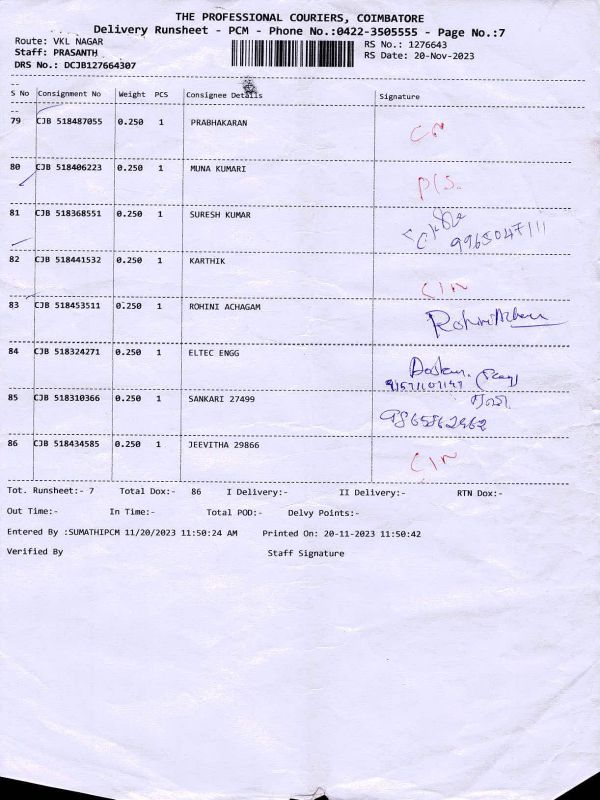 THE PROFESSIONAL COURIERS, COIMBATORE
Delivery Runsheet - PCM - Phone No.:0422-3505555 - Page No.:7
Route: VKL NAGAR RS No.: 1276643
Staff: PRASANTH RS Date: 20-Nov-2023
DRS No.: DCJB127664307
S No Consignment No Weight PCS Consignee Details Signature
79 CJB 518487055 0.250 1 PRABHAKARAN
80 CJB 518406223 0.250 1 MUNA KUMARI P/S.
81 CJB 518368551 0.250 1 SURESH KUMAR
9965047111
82 CJB 518441532 0.250 1 KARTHIK C/N
83 CJB 518453511 0.250 1 ROHINI ACHAGAM Rohini
84 CJB 518324271 0.250 1 ELTEC ENGG
85 CJB 518310366 0.250 1 SANKARI 27499
9865862962
86 CJB 518434585 0.250 1 JEEVITHA 29866 C/N
Tot. Runsheet:- 7 Total Dox:- 86 I Delivery:- II Delivery:- RTN Dox:-
Out Time:- In Time:- Total POD:- Delvy Points:-
Entered By :SUMATHIPCM 11/20/2023 11:50:24 AM Printed On: 20-11-2023 11:50:42
Verified By Staff Signature